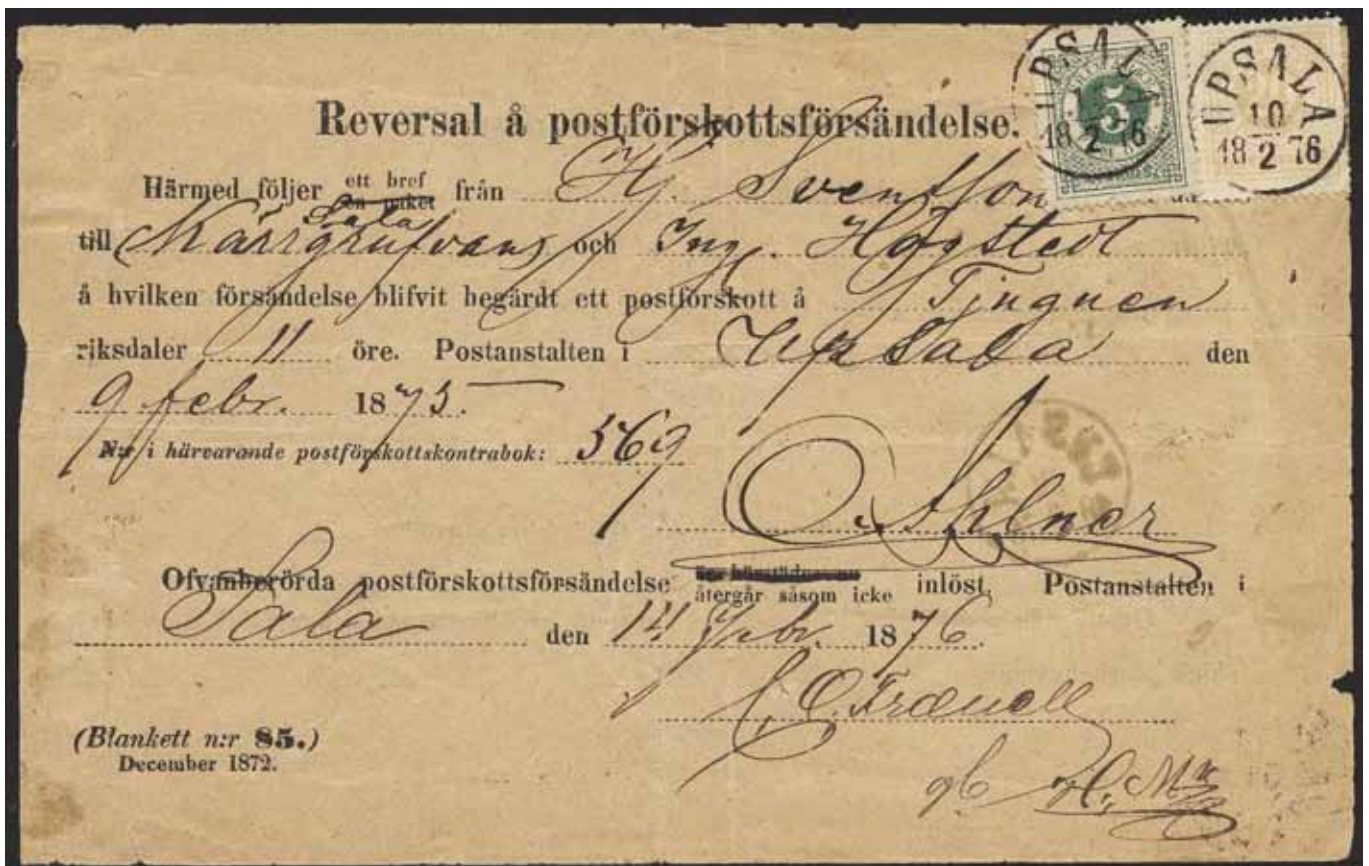 UPSALA
5
18 2 76
UPSALA
10
18 2 76
Reversal å postförskottsförsändelse.
Härmed följer ett bref en paket från Hj. Svensson
till Kärrgrufvans Sala och Ing. Högstedt
å hvilken försändelse blifvit begärdt ett postförskott å Tjuguen
riksdaler 11 öre. Postanstalten i Upsala den
9 febr. 1875.
N:r i härvarande postförskottskontrabok: 569
O. Ahlner
Ofvanberörda postförskottsförsändelse återgår såsom icke inlöst, Postanstalten i
Sala den 14 Febr. 1876.
(Blankett n:r 85.)
December 1872.